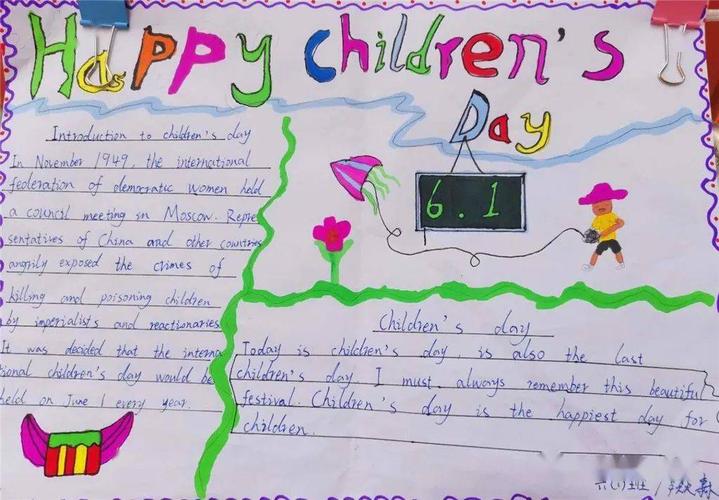 Happy Children's
Day
6.1
Introduction to children's day
In November 1949, the international
federation of democratic women held
a council meeting in Moscow. Repre
sentatives of China and other countries
angrily exposed the crimes of
killing and poisoning children
by imperialists and reactionaries
It was decided that the interna
tional children's day would be
held on June 1 every year.
Children's day
Today is children's day, is also the last
children's day. I must always remember this beautiful
festival. Children's day is the happiest day for
children.
六(1)班